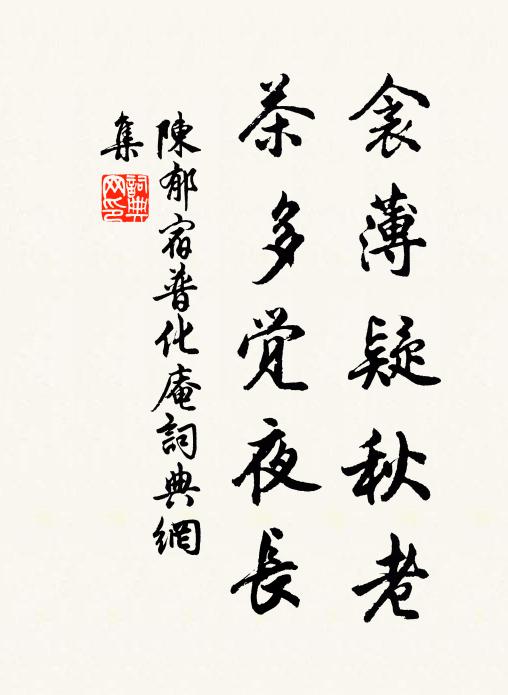 衾薄疑秋老
茶多觉夜長
陳郁宿普化庵詞典網
集
詞典
网印